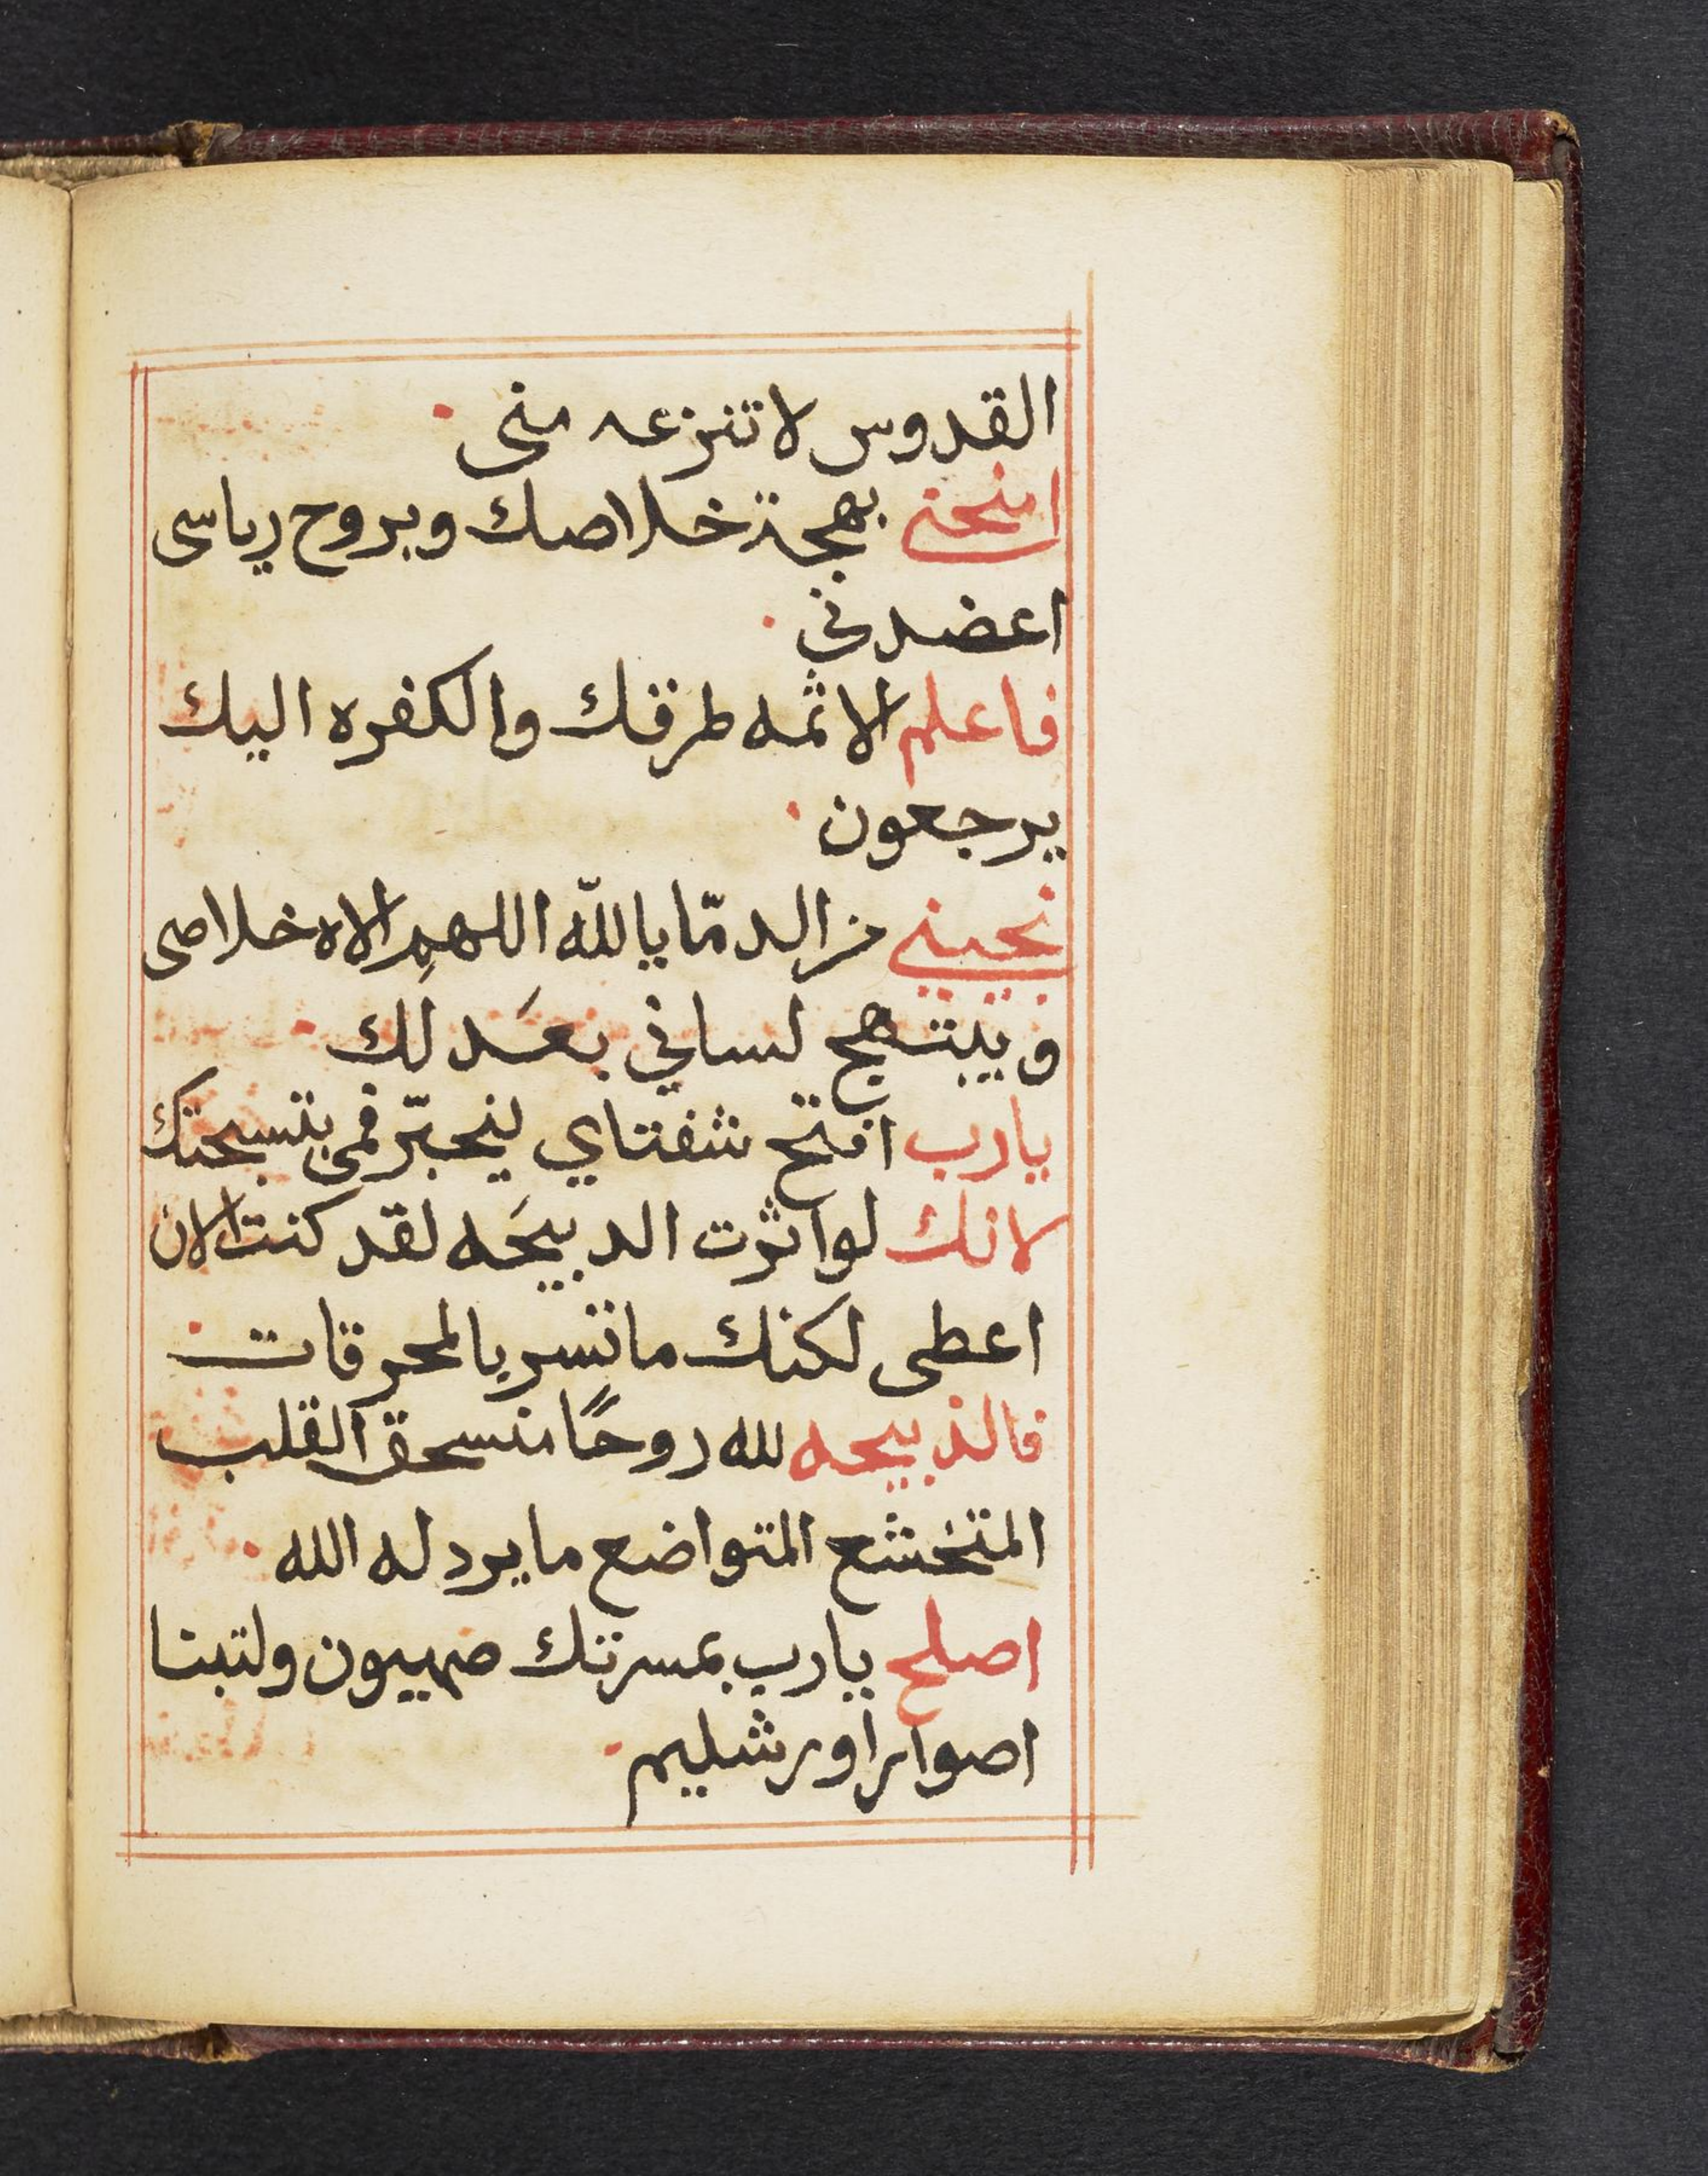 القدوس لا تنزعه منى
امنحنى بهجة خلاصك وبروح رياسى
اعضدني
فاعلم الاثمه طرقك والكفره اليك
يرجعون
نجيني من الدمّا يا اللّه اللهم الاه خلاصى
ويبتهج لساني بعَدلك
يارب افتح شفتاي ليخبّر فمى بتسبحتك
لانك لو اثرت الدبيحَه لقد كنت الان
اعطى لكنك ما تسر بالمحرقات
فالذبيحه لله روحًا منسحق القلب
المتخشع المتواضع ما يرد له الله
اصلح يارب بمسرتك صهيون ولتبنا
اصوار اورشليم